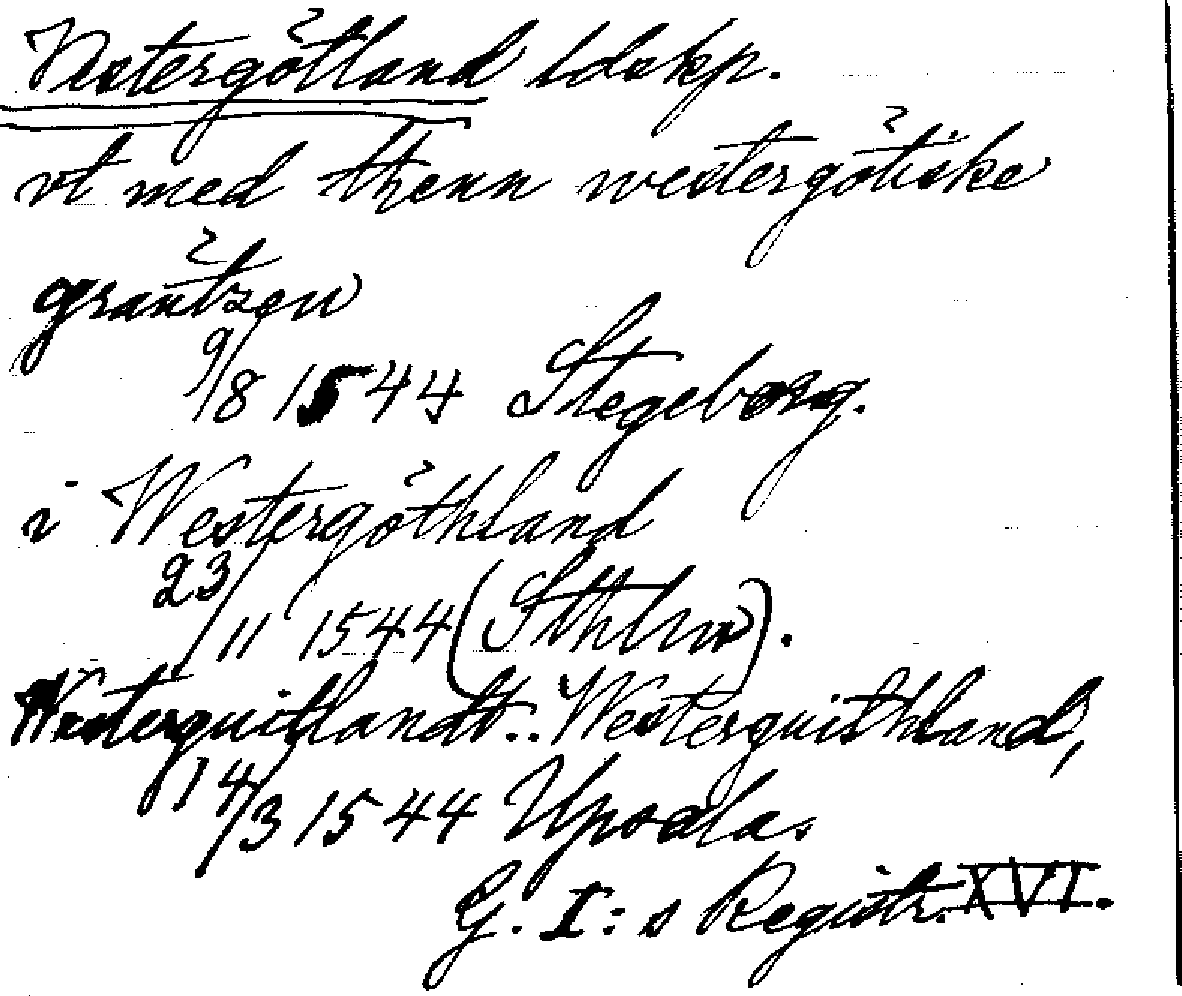 Vestergötland ldskp.
vt med thenn westergötiske
gräntzen
9/8 1544 Stegeborg.
i Westergöthland
23/11 1544 (Sthlm).
Westerguitlandt.. Westerguithland,
14/3 1544 Upsala.
G. I:s Registr. XVI.